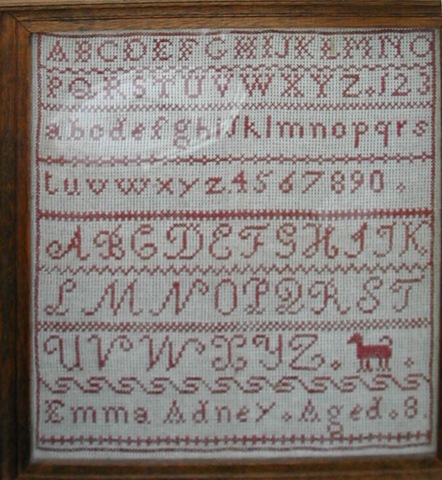 ABCDEFGHIJKLMNO
PQRSTUVWXYZ.123
abcdefghijklmnopqrs
tuvwxyz.4567890.
ABCDEFGHIJK
LMNOPQRST
UVWXYZ.
Emma Adney. Aged. 8.